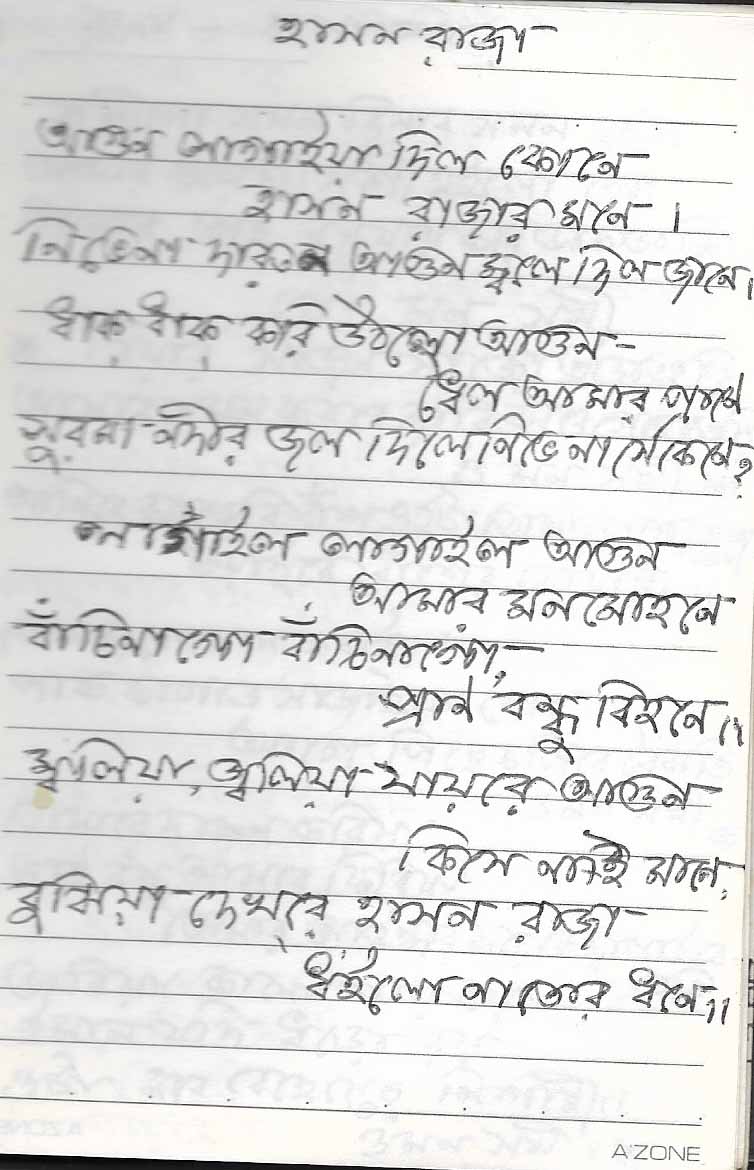 হাসন রাজা
আগুন লাগাইয়া দিল কোনে
হাসন রাজার মনে ।
নিভেনা দারুন আগুন জ্বলে দিল জানে ।
ধাক্ ধাক্ করি উঠলো আগুন -
ধৈল আমার প্রানে
সুরমা নদীর জল দিলে নিভে না সে কেনে?
লাগাইল লাগাইল আগুন
আমার মনমোহনে
বাঁচিনাগো বাঁচিনাগো,
প্রান বন্ধু বিহনে ।।
জ্বলিয়া, জ্বলিয়া যায়রে আগুন
কিসে নাই মানে,
বুঝিয়া দেখরে হাসন রাজা
ধইলো না তোর ধনে ।।
A'ZONE